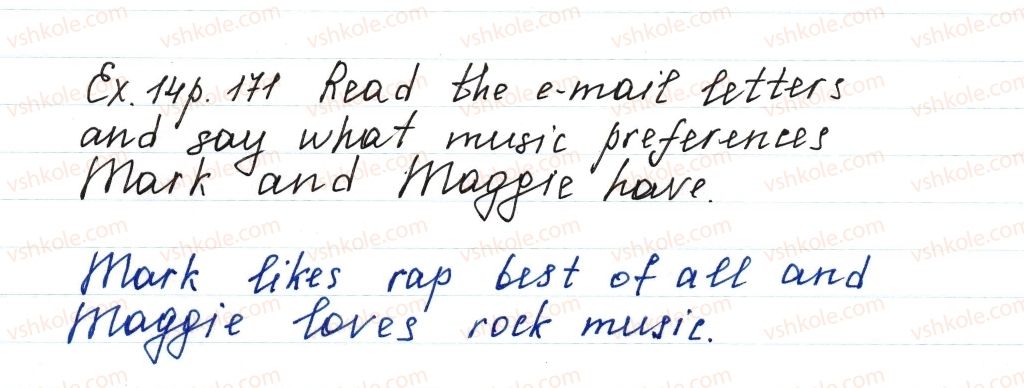 Ex. 14 p. 171 Read the e-mail letters
and say what music preferences
Mark and Maggie have.
Mark likes rap best of all and
Maggie loves rock music.